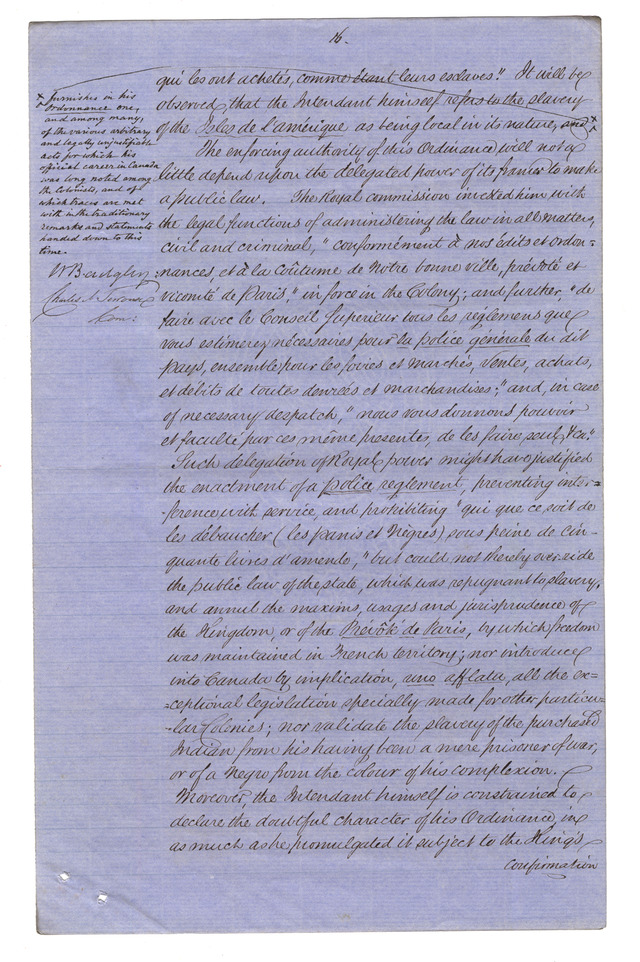 16.
qui les ont achetés, comme étant leurs esclaves." It will be
observed, that the Intendant himself refers to the slavery
of the Isles de l'amérique as being local in its nature, and ×
The enforcing authority of this Ordinance will not a
little depend upon the delegated power of its framer to make
a public law. The Royal commission invested him with
the legal functions of administering the law in all matters,
civil and criminal, "conformément à nos édits et ordon-
nances, et à la coûtume de Notre bonne ville, prévôté et
vicomté de Paris," in force in the Colony; and further, "de
faire avec le Conseil Superieur tous les reglemens que
vous estimerez nécessaires pour la police générale du dit
pays, ensemble pour les foires et marchés, ventes, achats,
et débits de toutes denrées et marchandises;" and, in case
of necessary despatch, "nous vous donnons pouvoir
et faculté par ces même presentes, de les faire, seul, &ca."
Such delegation of Royal power might have justified
the enactment of a police reglement, preventing inter=
=ference with service, and prohibiting "qui que ce soit de
les débaucher (les panis et Nègres) sous peine de cin-
quante livres d'amende," but could not thereby override
the public law of the state, which was repugnant to slavery,
and annul the maxims, usages and jurisprudence of
the Kingdom, or of the Prévôté de Paris, by which freedom
was maintained in French territory; nor introduce
into Canada by implication, uno afflatu, all the ex=
=ceptional legislation specially made for other particu-
-lar Colonies; nor validate the slavery of the purchased
Indian from his having been a mere prisoner of war,
or of a Negro from the colour of his complexion.
Moreover, the Intendant himself is constrained to
declare the doubtful character of his Ordinance, in
as much as he promulgated it subject to the King's
confirmation
× furnishes in his
Ordonnance one,
and among many,
of the various arbitrary
and legally unjustifiable
acts for which his
special career in Canada
was long noted among
the Colonists, and of
which traces are met
with in the traditionary
remarks and statements
handed down to this
time.
W Badgley
Charles
Com: